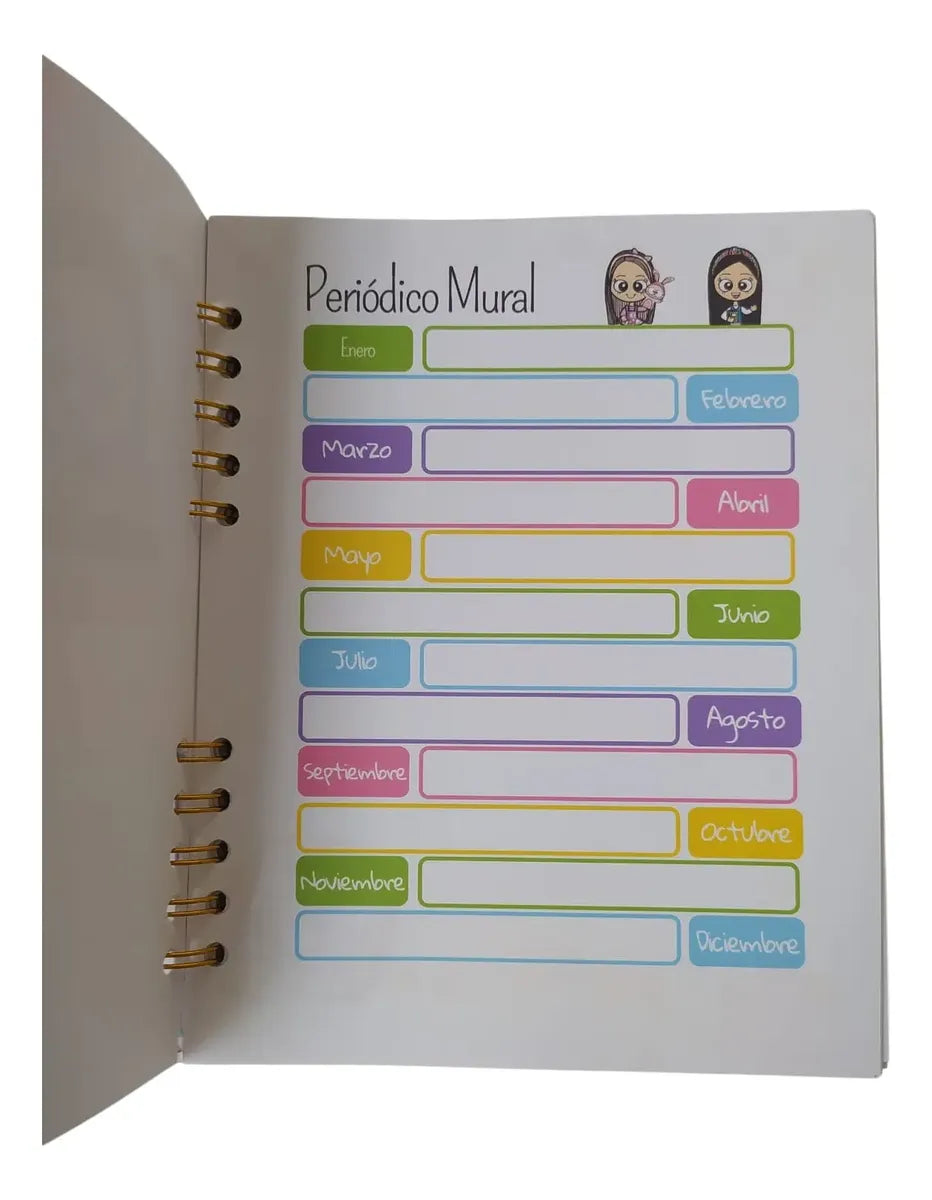 Periódico Mural
Enero
Febrero
Marzo
Abril
Mayo
Junio
Julio
Agosto
Septiembre
Octubre
Noviembre
Diciembre